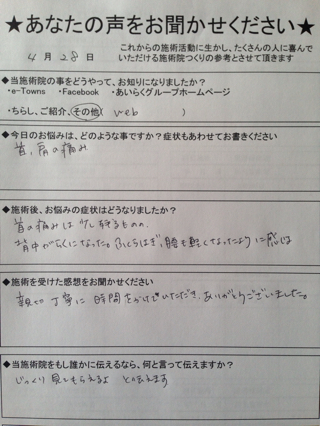 ★あなたの声をお聞かせください★
4月28日
これからの施術活動に生かし、たくさんの人に喜んで
いただける施術院つくりの参考とさせて頂きます
◆当施術院の事をどうやって、お知りになりましたか？
・e-Towns ・Facebook ・あいらくグループホームページ
・ちらし、ご紹介、その他( web )
◆今日のお悩みは、どのような事ですか？症状もあわせてお書きください
首、肩の痛み
◆施術後、お悩みの症状はどうなりましたか？
首の痛みは少し残るものの、
背中が広くになった。ふくらはぎ、腰も軽くなったように感じる
◆施術を受けた感想をお聞かせください
親切丁寧に時間をかけていただき、ありがとうございました。
◆当施術院をもし誰かに伝えるなら、何と言って伝えますか？
じっくり見てもらえるよ と伝えます